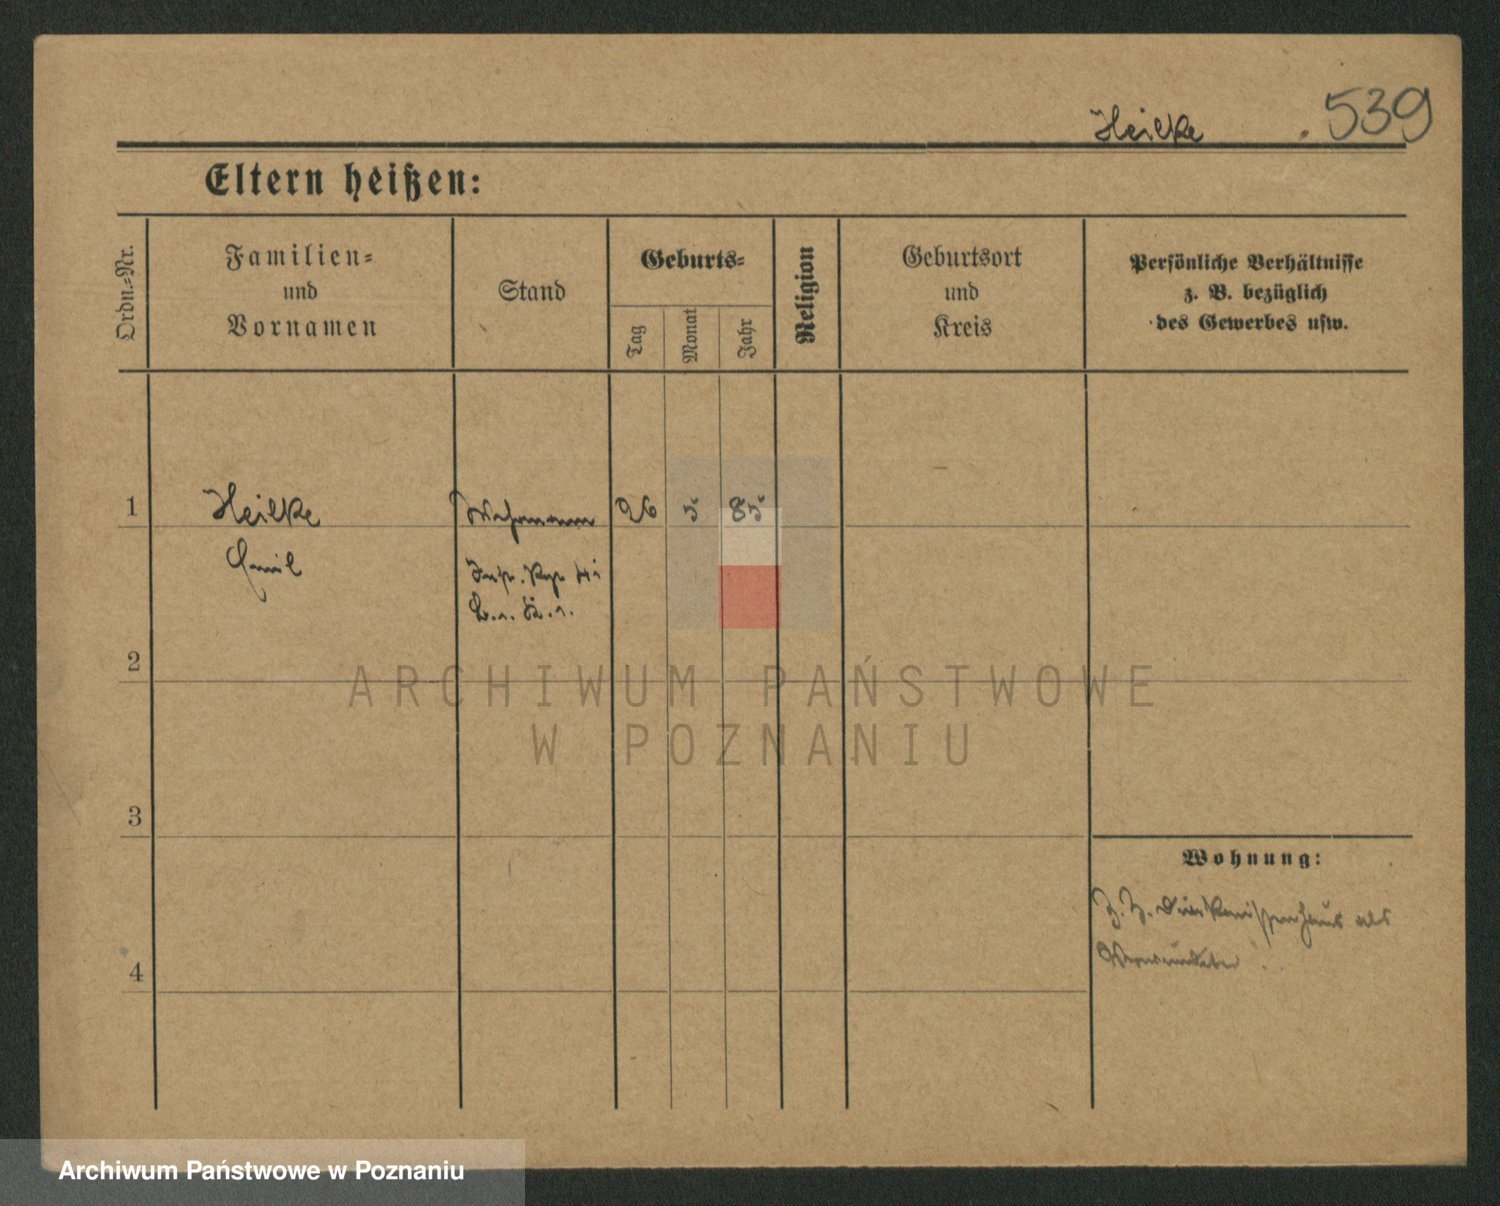 Heilke . 539
Eltern heißen:
Ordn.=Nr.
Familien=
und
Vornamen
Stand
Geburts=
Tag
Monat
Jahr
Religion
Geburtsort
und
Kreis
Persönliche Verhältnisse
z. B. bezüglich
des Gewerbes usw.
1
Heilke
Emil
Wehrmann
26 5 85
2
ARCHIWUM PAŃSTWOWE
W POZNANIU
3
Wohnung:
Z. Z. Diakonissenhaus als
Verwundeter.
4
Archiwum Państwowe w Poznaniu